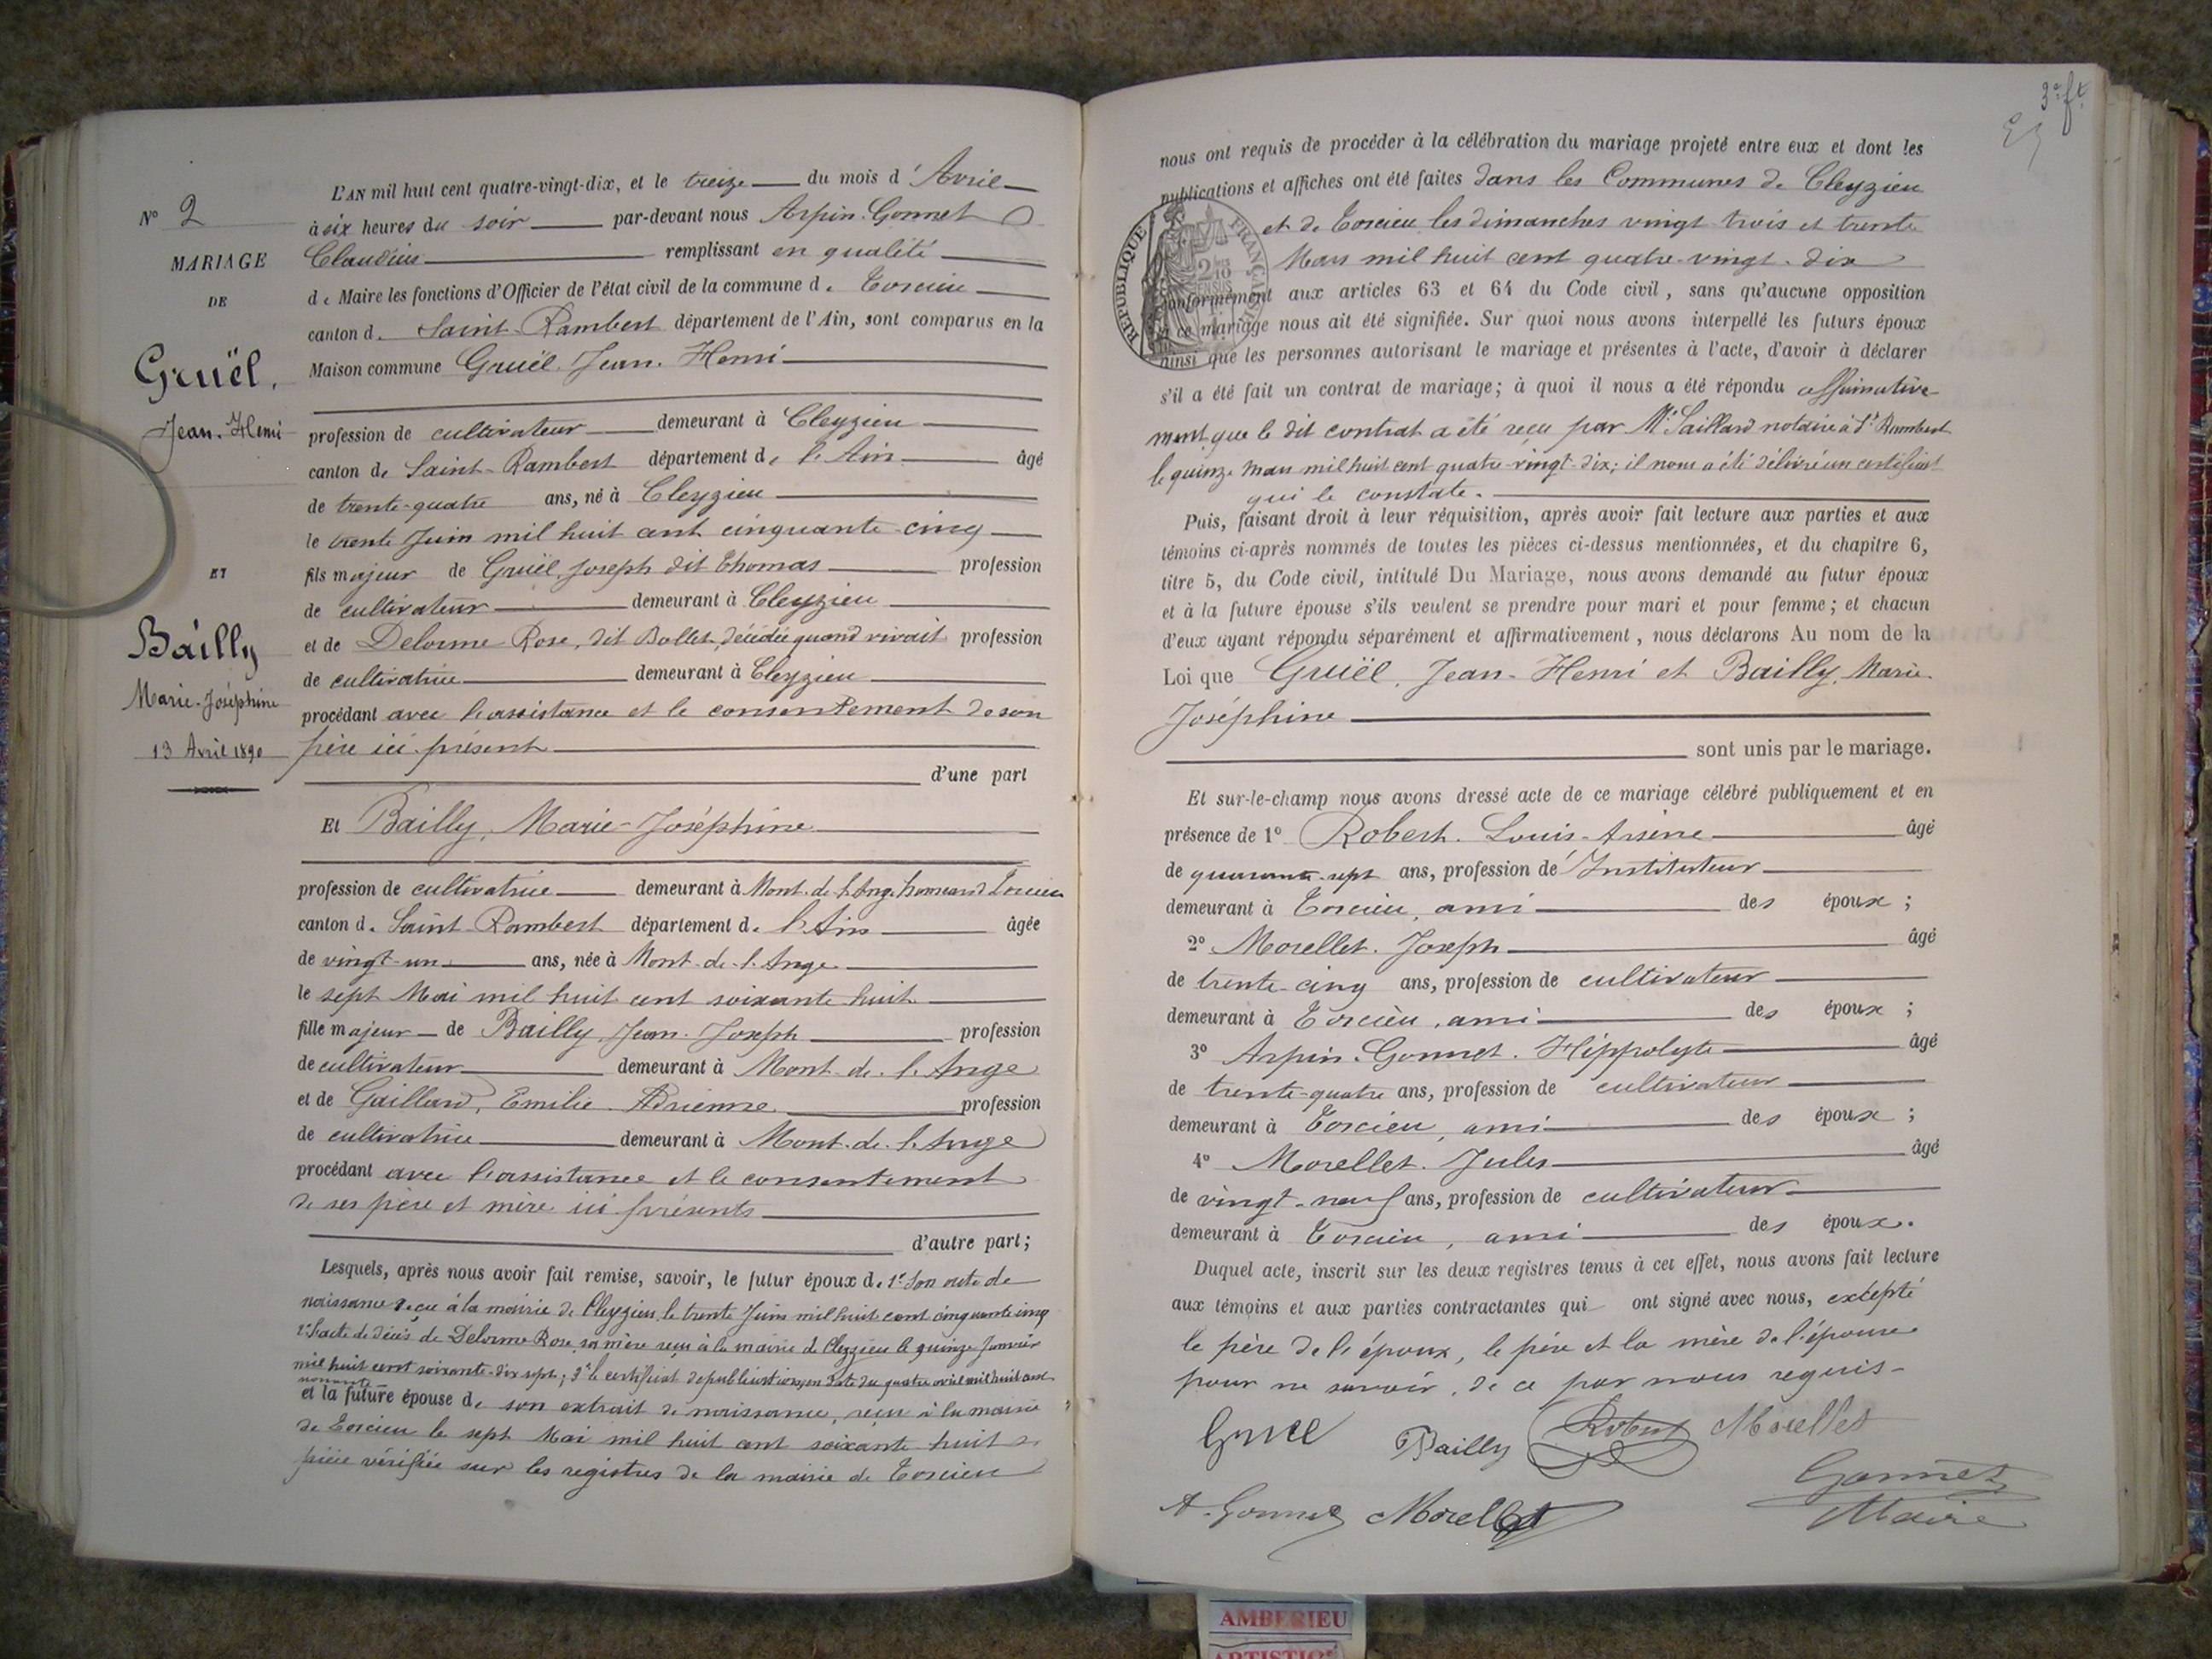 N° 2
MARIAGE
DE
Gruël,
Jean-Henri
ET
Bailly
Marie-Joséphine
13 Avril 1890
L'AN mil huit cent quatre-vingt-dix, et le treize du mois d'Avril
à six heures du soir par-devant nous Arpin-Gonnet
Claudius remplissant en qualité
de Maire les fonctions d'Officier de l'état civil de la commune de Torcieu
canton de Saint-Rambert département de l'Ain, sont comparus en la
Maison commune Gruël, Jean-Henri
profession de cultivateur demeurant à Cleyzieu
canton de Saint-Rambert département de l'Ain âgé
de trente-quatre ans, né à Cleyzieu
le trente Juin mil huit cent cinquante-cinq
fils majeur de Gruël, Joseph dit Thomas profession
de cultivateur demeurant à Cleyzieu
et de Delorme Rose, dit Bollet, décédée quand vivait profession
de cultivatrice demeurant à Cleyzieu
procédant avec l'assistance et le consentement de son
père ici présent
d'une part
Et Bailly, Marie-Joséphine
profession de cultivatrice demeurant à Mont-de-l'Ange hameau de Torcieu
canton de Saint-Rambert département de l'Ain âgée
de vingt-un ans, née à Mont-de-l'Ange
le sept Mai mil huit cent soixante-huit
fille majeur de Bailly, Jean-Joseph profession
de cultivateur demeurant à Mont-de-l'Ange
et de Gaillard, Emilie-Adrienne profession
de cultivatrice demeurant à Mont-de-l'Ange
procédant avec l'assistance et le consentement
de ses père et mère ici présents
d'autre part;
Lesquels, après nous avoir fait remise, savoir, le futur époux de 1° Son acte de
naissance reçu à la mairie de Cleyzieu le trente Juin mil huit cent cinquante-cinq
2° l'acte de décès de Delorme Rose, sa mère reçu à la mairie de Cleyzieu le quinze Janvier
mil huit cent soixante-dix-sept; 3° le certificat de publications en date du quatre avril mil huit cent
nonante
et la future épouse de son extrait de naissance, reçu à la mairie
de Torcieu le sept Mai mil huit cent soixante-huit
pièce vérifiée sur les registres de la mairie de Torcieu
3e ft
nous ont requis de procéder à la célébration du mariage projeté entre eux et dont les
publications et affiches ont été faites dans les Communes de Cleyzieu
et de Torcieu les dimanches vingt-trois et trente
Mars mil huit cent quatre-vingt-dix
conformément aux articles 63 et 64 du Code civil, sans qu'aucune opposition
à ce mariage nous ait été signifiée. Sur quoi nous avons interpellé les futurs époux
ainsi que les personnes autorisant le mariage et présentes à l'acte, d'avoir à déclarer
s'il a été fait un contrat de mariage; à quoi il nous a été répondu affirmative-
ment que le dit contrat a été reçu par Me Saillard notaire à St Rambert
le quinze Mars mil huit cent quatre-vingt-dix; il nous a été délivré un certificat
qui le constate.
REPUBLIQUE FRANÇAISE
Puis, faisant droit à leur réquisition, après avoir fait lecture aux parties et aux
témoins ci-après nommés de toutes les pièces ci-dessus mentionnées, et du chapitre 6,
titre 5, du Code civil, intitulé Du Mariage, nous avons demandé au futur époux
et à la future épouse s'ils veulent se prendre pour mari et pour femme; et chacun
d'eux ayant répondu séparément et affirmativement, nous déclarons Au nom de la
Loi que Gruël, Jean-Henri et Bailly, Marie-
Joséphine
sont unis par le mariage.
Et sur-le-champ nous avons dressé acte de ce mariage célébré publiquement et en
présence de 1° Robert, Louis-Arsène âgé
de quarante-sept ans, profession d'Instituteur
demeurant à Torcieu, ami des époux;
2° Morellet, Joseph âgé
de trente-cinq ans, profession de cultivateur
demeurant à Torcieu, ami des époux;
3° Arpin-Gonnet, Hippolyte âgé
de trente-quatre ans, profession de cultivateur
demeurant à Torcieu, ami des époux;
4° Morellet, Jules âgé
de vingt-neuf ans, profession de cultivateur
demeurant à Torcieu, ami des époux.
Duquel acte, inscrit sur les deux registres tenus à cet effet, nous avons fait lecture
aux témoins et aux parties contractantes qui ont signé avec nous, excepté
le père de l'époux, le père et la mère de l'épouse
pour ne savoir, de ce par nous requis-
Gruel Bailly Robert Morellet
A. Gonnet Morellet Gonnet
Maire
AMBERIEU
ARTISTIQ